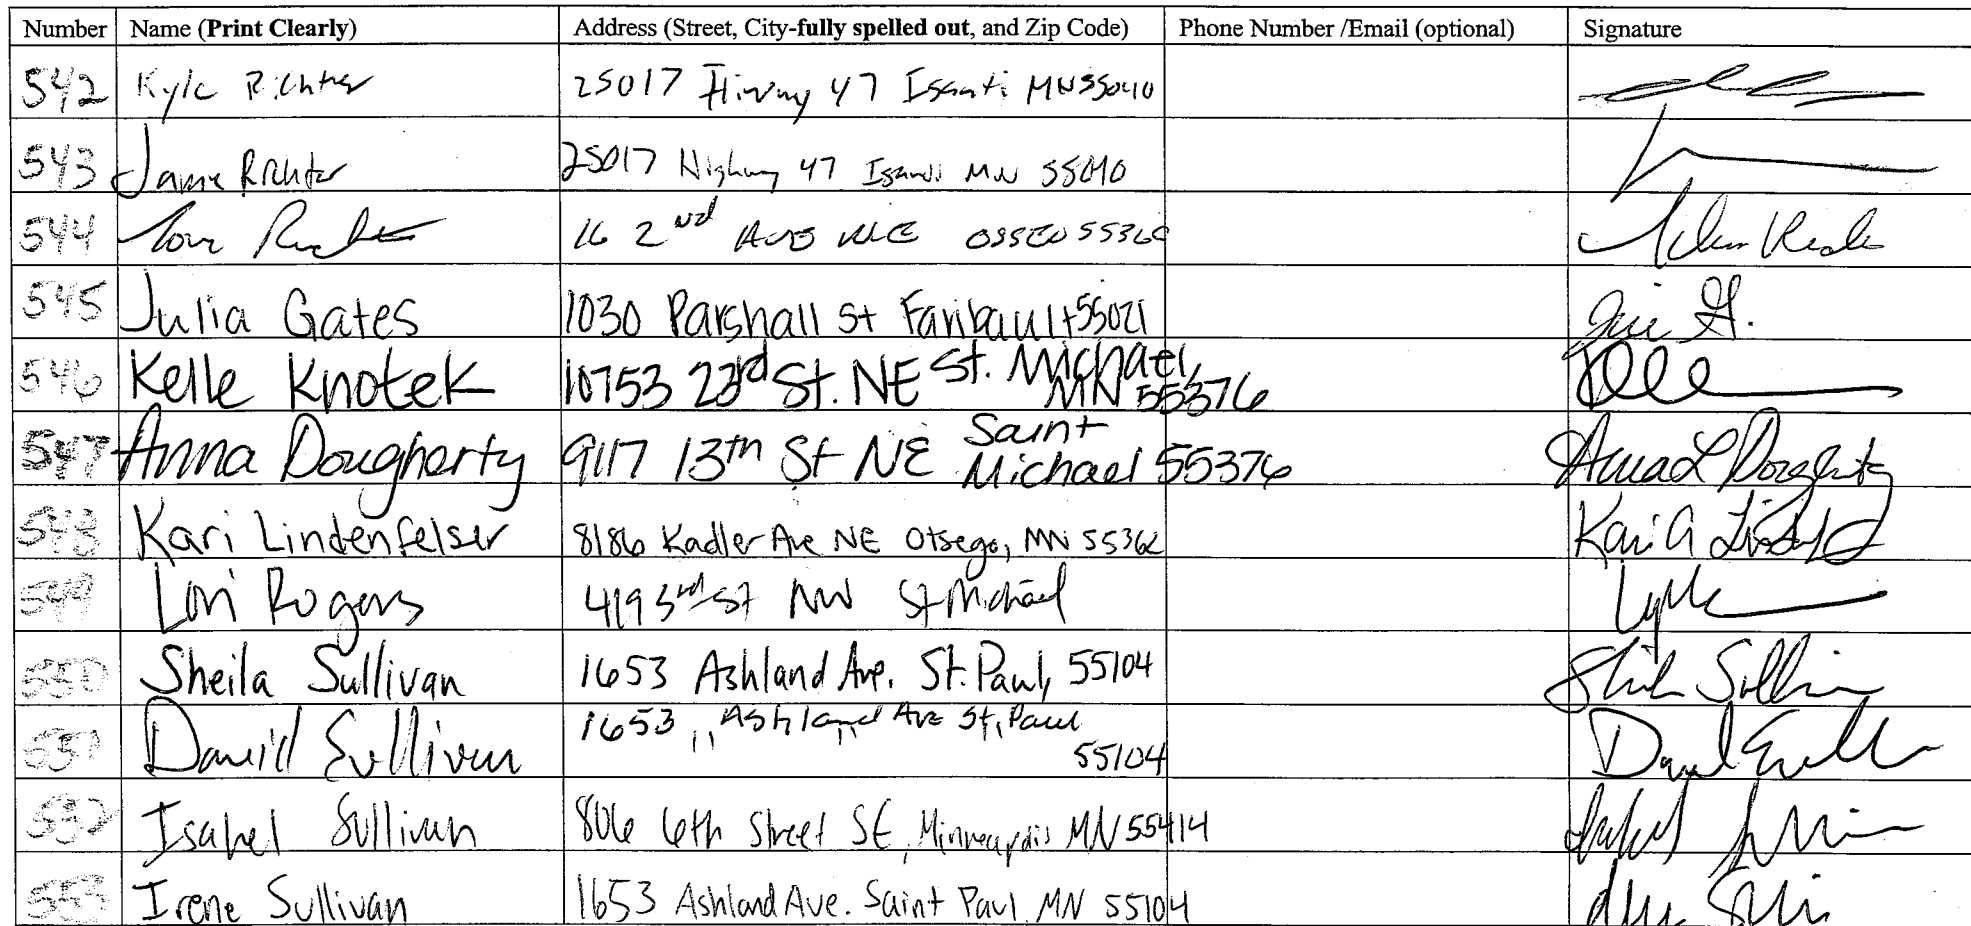 Number Name (Print Clearly) Address (Street, City-fully spelled out, and Zip Code) Phone Number /Email (optional) Signature
542 Kyle Richter 25017 Hiway 47 Isanti MN 55040
543 Jamie Richter 25017 Highway 47 Isanti MN 55040
544 16 2nd AVE NE OSSEO 5536
545 Julia Gates 1030 Parshall St Faribault 55021
546 Kelle Knotek 10753 23rd St. NE St. Michael, MN 55376
547 Anna Dougherty 9117 13th St NE Saint Michael 55376 Anna L Dougherty
548 Kari Lindenfelser 8186 Kadler Ave NE Otsego, MN 55362 Kari A
549 Lori Rogers 419 3rd St NW St Michael
550 Sheila Sullivan 1653 Ashland Ave. St. Paul, 55104 Sheila Sullivan
551 David Sullivan 1653 Ashland Ave St, Paul 55104 David Sullivan
552 Isabel Sullivan 806 6th Street SE, Minneapolis MN 55414
553 Irene Sullivan 1653 Ashland Ave. Saint Paul MN 55104